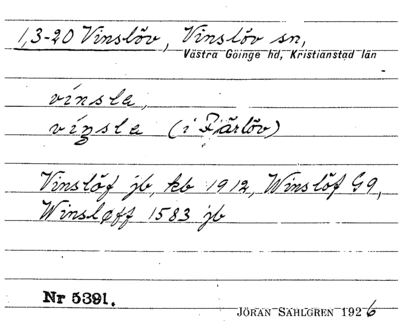 1,3-20 Vinslöv, Vinslöv sn,
Västra Göinge hd, Kristianstad län
vínsla,
víṇsla (i Färlöv)
Vinslöf jb, kb 1912, Winslöf G9,
Winsløff 1583 jb
Nr 5391.
JÖRAN SAHLGREN 1926